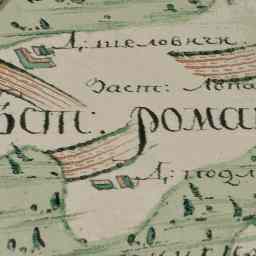 Д: шеловичи
Заст: Лопа
ѣст: рома
Д: подл